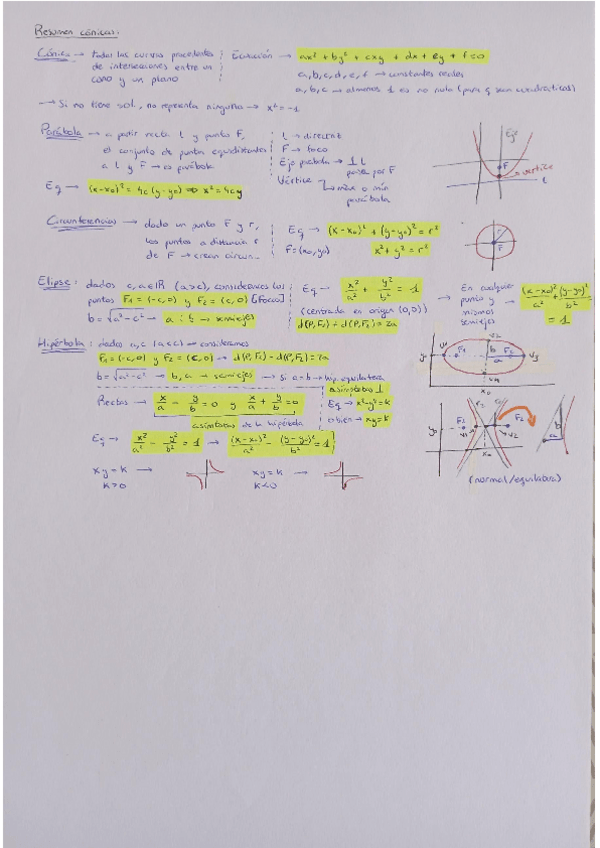 Resumen cónicas.
Cónica → todas las curvas procedentes de intersecciones entre un cono y un plano
Ecuación → ax² + by² + cxy + dx + ey + f = 0
a, b, c, d, e, f → constantes reales
a, b, c → almenos 1 es no nula (para q sean cuadráticas)
→ Si no tiene sol., no representa ninguna → x² = -1
Parábola → a partir recta l y punto F, el conjunto de puntos equidistantes a l y F → es parábola
l → directriz
F → foco
Eje parábola → ⊥ l pasa por F
Vértice → máx o mín parábola
Eq → (x-x₀)² = 4c(y-y₀) ⇒ x² = 4cy
Eje
F
vértice
l
Circunferencias → dado un punto F y r, los puntos a distancia r de F → crean circun.
Eq → (x-x₀)² + (y-y₀)² = r²
F = (x₀, y₀)
x² + y² = r²
r
F
Elipse: dados c, a ∈ ℝ (a > c), consideramos los puntos F₁ = (-c, 0) y F₂ = (c, 0) [Focos]
b = √a² - c² → a i b → semiejes
Eq → x²/a² + y²/b² = 1
(centrada en origen (0,0))
d(P, F₁) + d(P, F₂) = 2a
→ En cualquier punto y mismos semiejes → (x-x₀)²/a² + (y-y₀)²/b² = 1
Hipérbola: dados a, c (a < c) → consideramos
F₁ = (-c, 0) y F₂ = (c, 0) → d(P, F₁) - d(P, F₂) = 2a
→ b, a → semiejes → Si a = b → hip. equilatera
Rectas → x/a - y/b = 0 y x/a + y/b = 0
asíntotas de la hipérbola
asíntotas ⊥
Eq → x² - y² = k
o bién → xy = k
Eq → x²/a² - y²/b² = 1 → (x-x₀)²/a² - (y-y₀)²/b² = 1
xy = k → k > 0
xy = k → k < 0
y₀
F₁
b
a
F₂
x₀
y₀
F₂
x₀
b
a
(normal/equilatera)